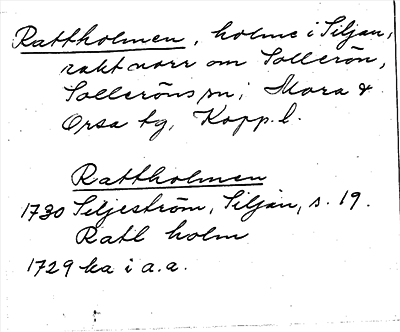 Rattholmen, holme i Siljan,
rakt norr om Sollerön,
Solleröns sn; Mora &
Orsa tg, Kopp. l.
Rattholmen
1730 Siljeström, Siljan, s. 19.
Ratl holm
1729 ka i a.a.